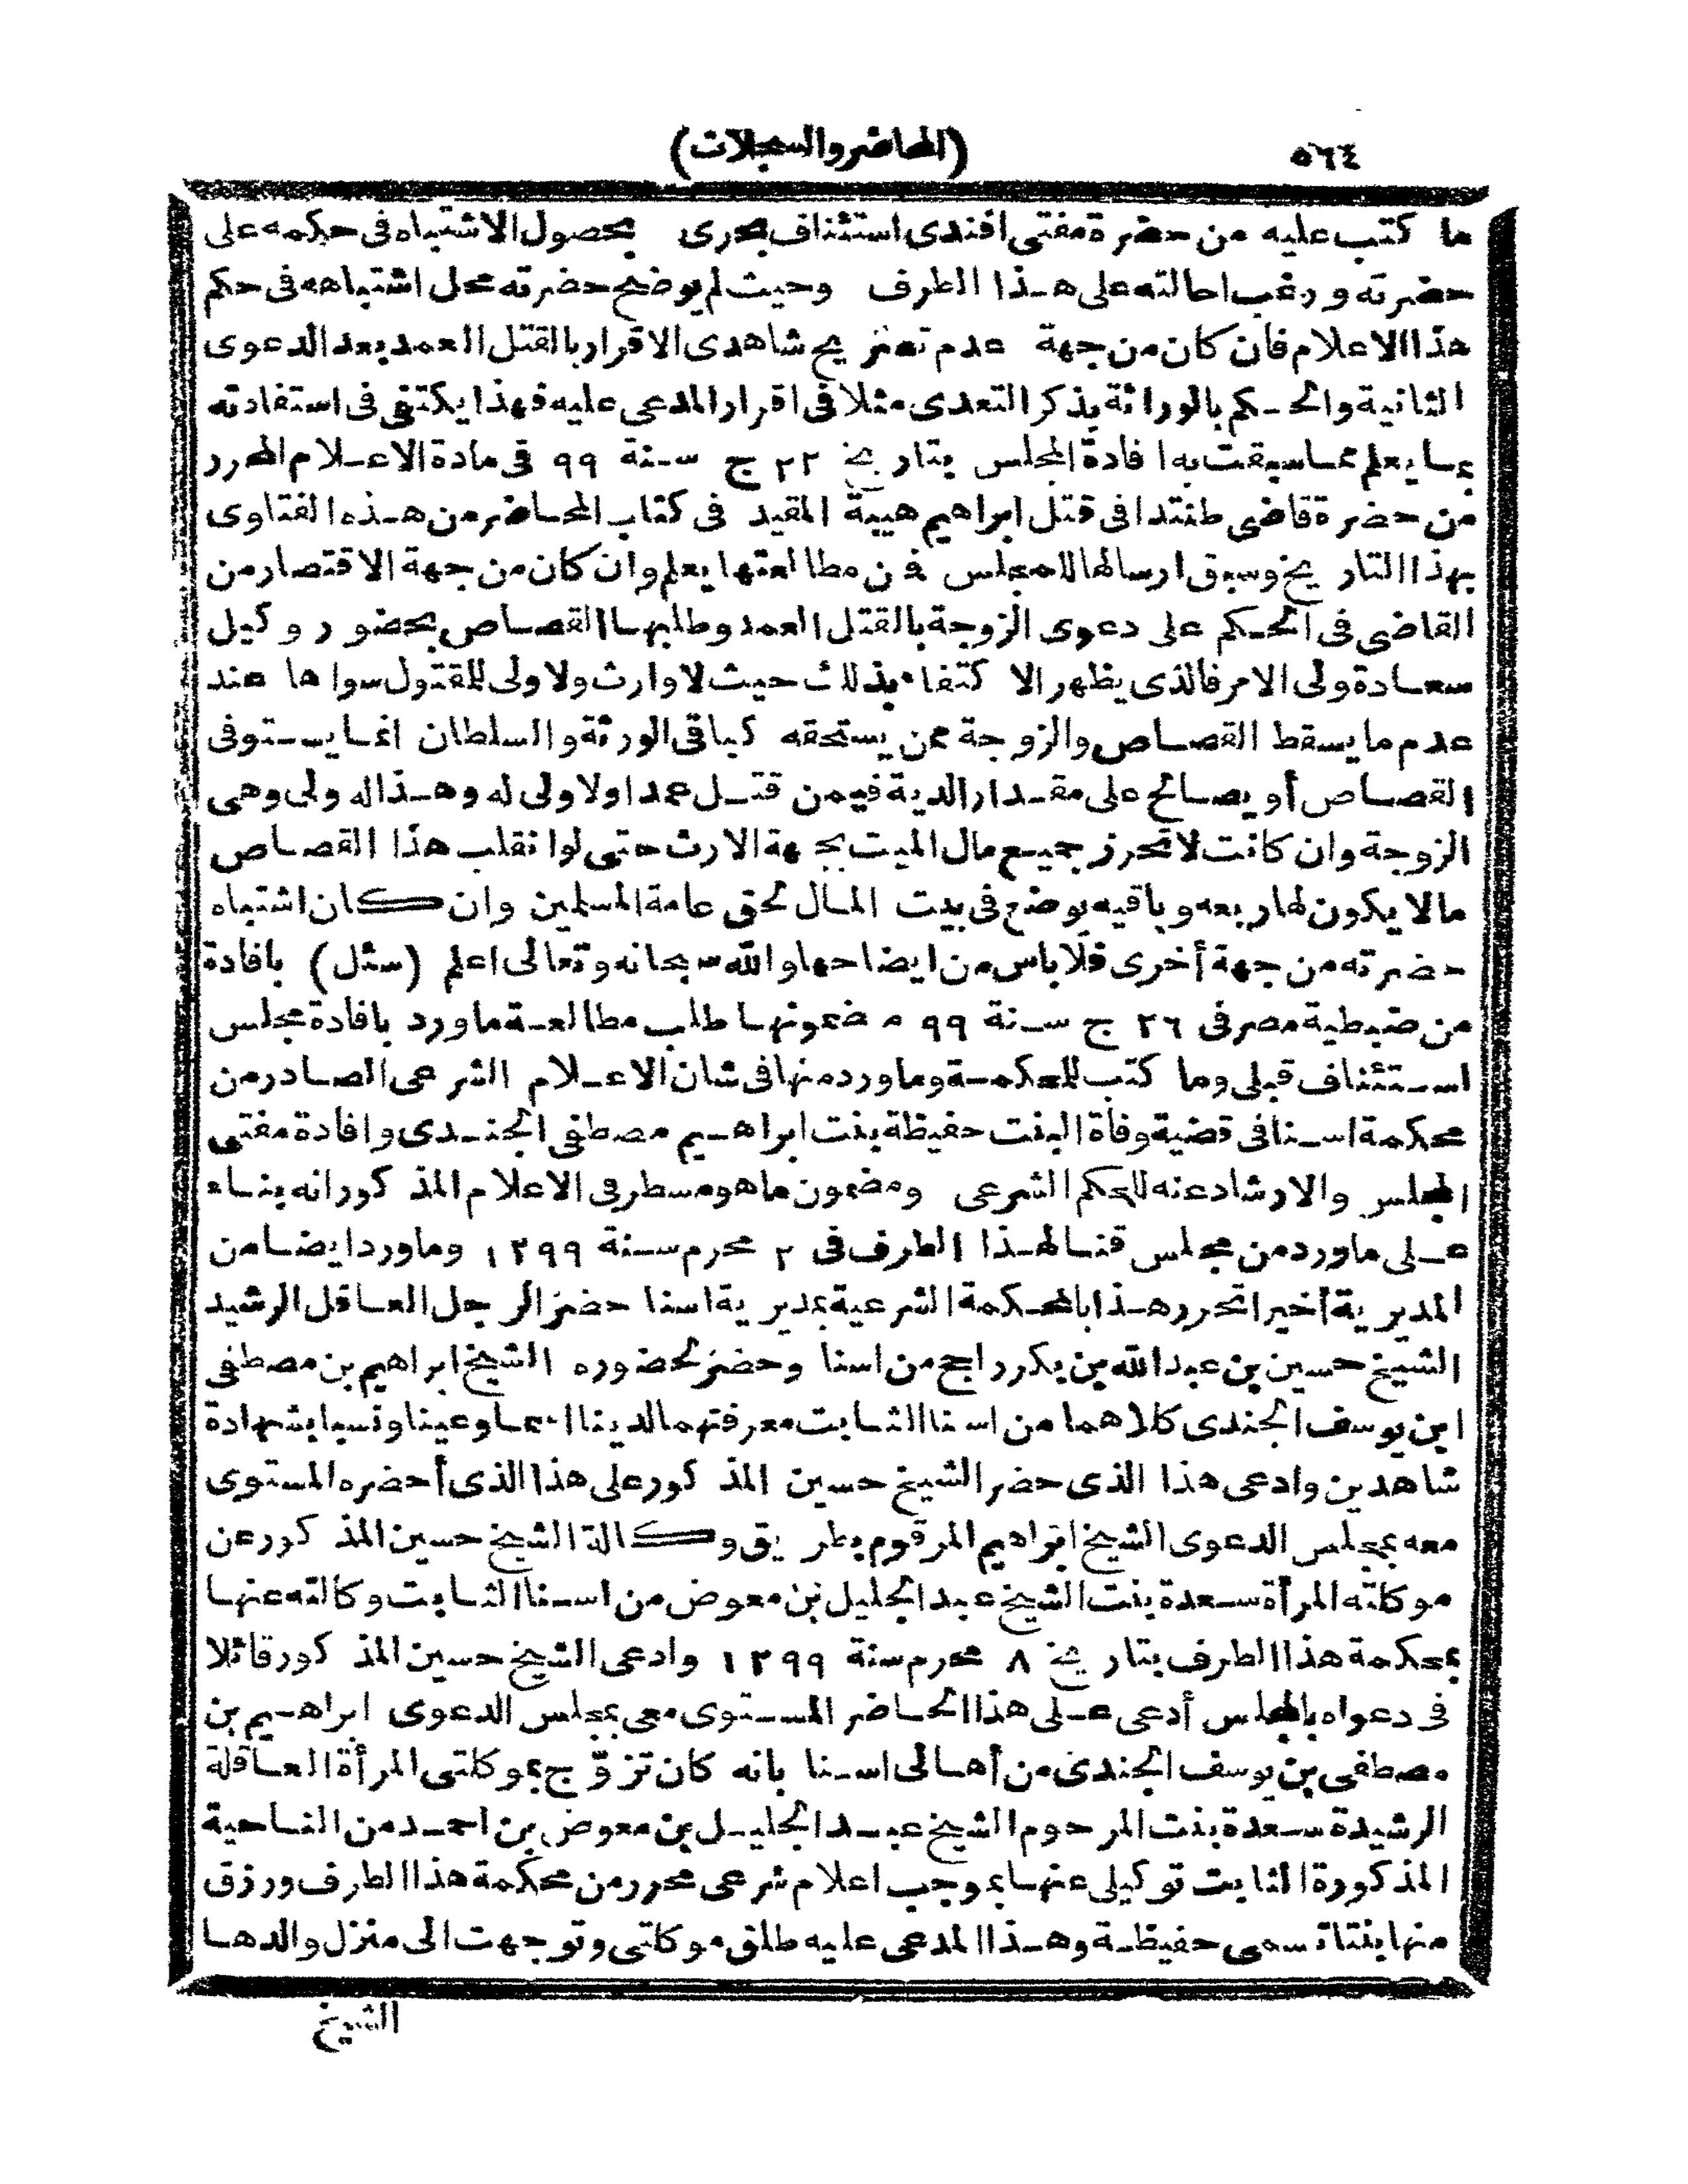 ٥٦٤
(المحاضر والسجلات)
ما كتب عليه من حضرة مفتى افندى استئناف بحرى بحصول الاشتباه فى حكمه على
حضرته ورغب احالته على هذا الطرف وحيث لم يوضح حضرته محل اشتباهه فى حكم
هذا الاعلام فان كان من جهة عدم تصريح شاهدى الاقرار بالقتل العمد بعد الدعوى
الثانية والحكم بالوراثة بذكر التعدى مثلا فى اقرار المدعى عليه فهذا يكتفى فى استفادته
بما يعلم مما سبقت به افادة المجلس بتاريخ ٢٢ ج سنة ٩٩ فى مادة الاعلام المحرر
من حضرة قاضى طنتدا فى قتل ابراهيم هيبة المقيد فى كتاب المحاضر من هذه الفتاوى
بهذا التاريخ وسبق ارسالها للمجلس فمن مطالعتها يعلم وان كان من جهة الاقتصار من
القاضى فى الحكم على دعوى الزوجة بالقتل العمد وطلبها القصاص بحضور وكيل
سعادة ولى الامر فالذى يظهر الاكتفاء بذلك حيث لا وارث ولا ولى للمقتول سواها عند
عدم ما يسقط القصاص والزوجة ممن يستحقه كباقى الورثة والسلطان انما يستوفى
القصاص أو يصالح على مقدار الدية فيمن قتل عمدا ولا ولى له وهذا له ولى وهى
الزوجة وان كانت لا تحرز جميع مال الميت بجهة الارث حتى لو انقلب هذا القصاص
مالا يكون لها ربعه وباقيه يوضع فى بيت المال لحق عامة المسلمين وان كان اشتباه
حضرته من جهة أخرى فلا باس من ايضاحها والله سبحانه وتعالى اعلم (سئل) بافادة
من ضبطية مصر فى ٢٦ ج سنة ٩٩ مضمونها طلب مطالعة ما ورد بافادة مجلس
استئناف قبلى وما كتب للمحكمة وما ورد منها فى شان الاعلام الشرعى الصادر من
محكمة اسنا فى قضية وفاة البنت حفيظة بنت ابراهيم مصطفى الجندى وافادة مفتى
المجلس والارشاد عنه للحكم الشرعى ومضمون ما هو مسطر فى الاعلام المذكور انه بناء
على ما ورد من مجلس قنا لهذا الطرف فى ٢ محرم سنة ١٢٩٩ وما ورد ايضا من
المديرية أخيرا تحرر هذا بالمحكمة الشرعية بمديرية اسنا حضر الرجل العاقل الرشيد
الشيخ حسين بن عبد الله بن بكر راجح من اسنا وحضر لحضوره الشيخ ابراهيم بن مصطفى
ابن يوسف الجندى كلاهما من اسنا الثابت معرفتهما لدينا اسما وعينا ونسبا بشهادة
شاهدين وادعى هذا الذى حضر الشيخ حسين المذكور على هذا الذى أحضره المستوى
معه بمجلس الدعوى الشيخ ابراهيم المرقوم بطريق وكالة الشيخ حسين المذكور عن
موكلته المرأة سعدة بنت الشيخ عبد الجليل بن معوض من اسنا الثابت وكالته عنها
بمحكمة هذا الطرف بتاريخ ٨ محرم سنة ١٢٩٩ وادعى الشيخ حسين المذكور قائلا
فى دعواه بالمجلس أدعى على هذا الحاضر المستوى معى بمجلس الدعوى ابراهيم بن
مصطفى بن يوسف الجندى من أهالى اسنا بانه كان تزوّج بموكلتى المرأة العاقلة
الرشيدة سعدة بنت المرحوم الشيخ عبد الجليل بن معوض بن احمد من الناحية
المذكورة الثابت توكيلى عنها بموجب اعلام شرعى محرر من محكمة هذا الطرف ورزق
منها بنتا تسمى حفيظة وهذا المدعى عليه طلق موكلتى وتوجهت الى منزل والدها
الشيخ